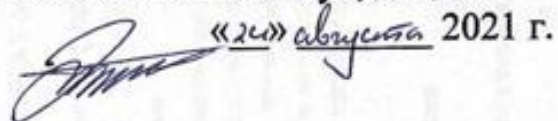 «24» августа 2021 г.